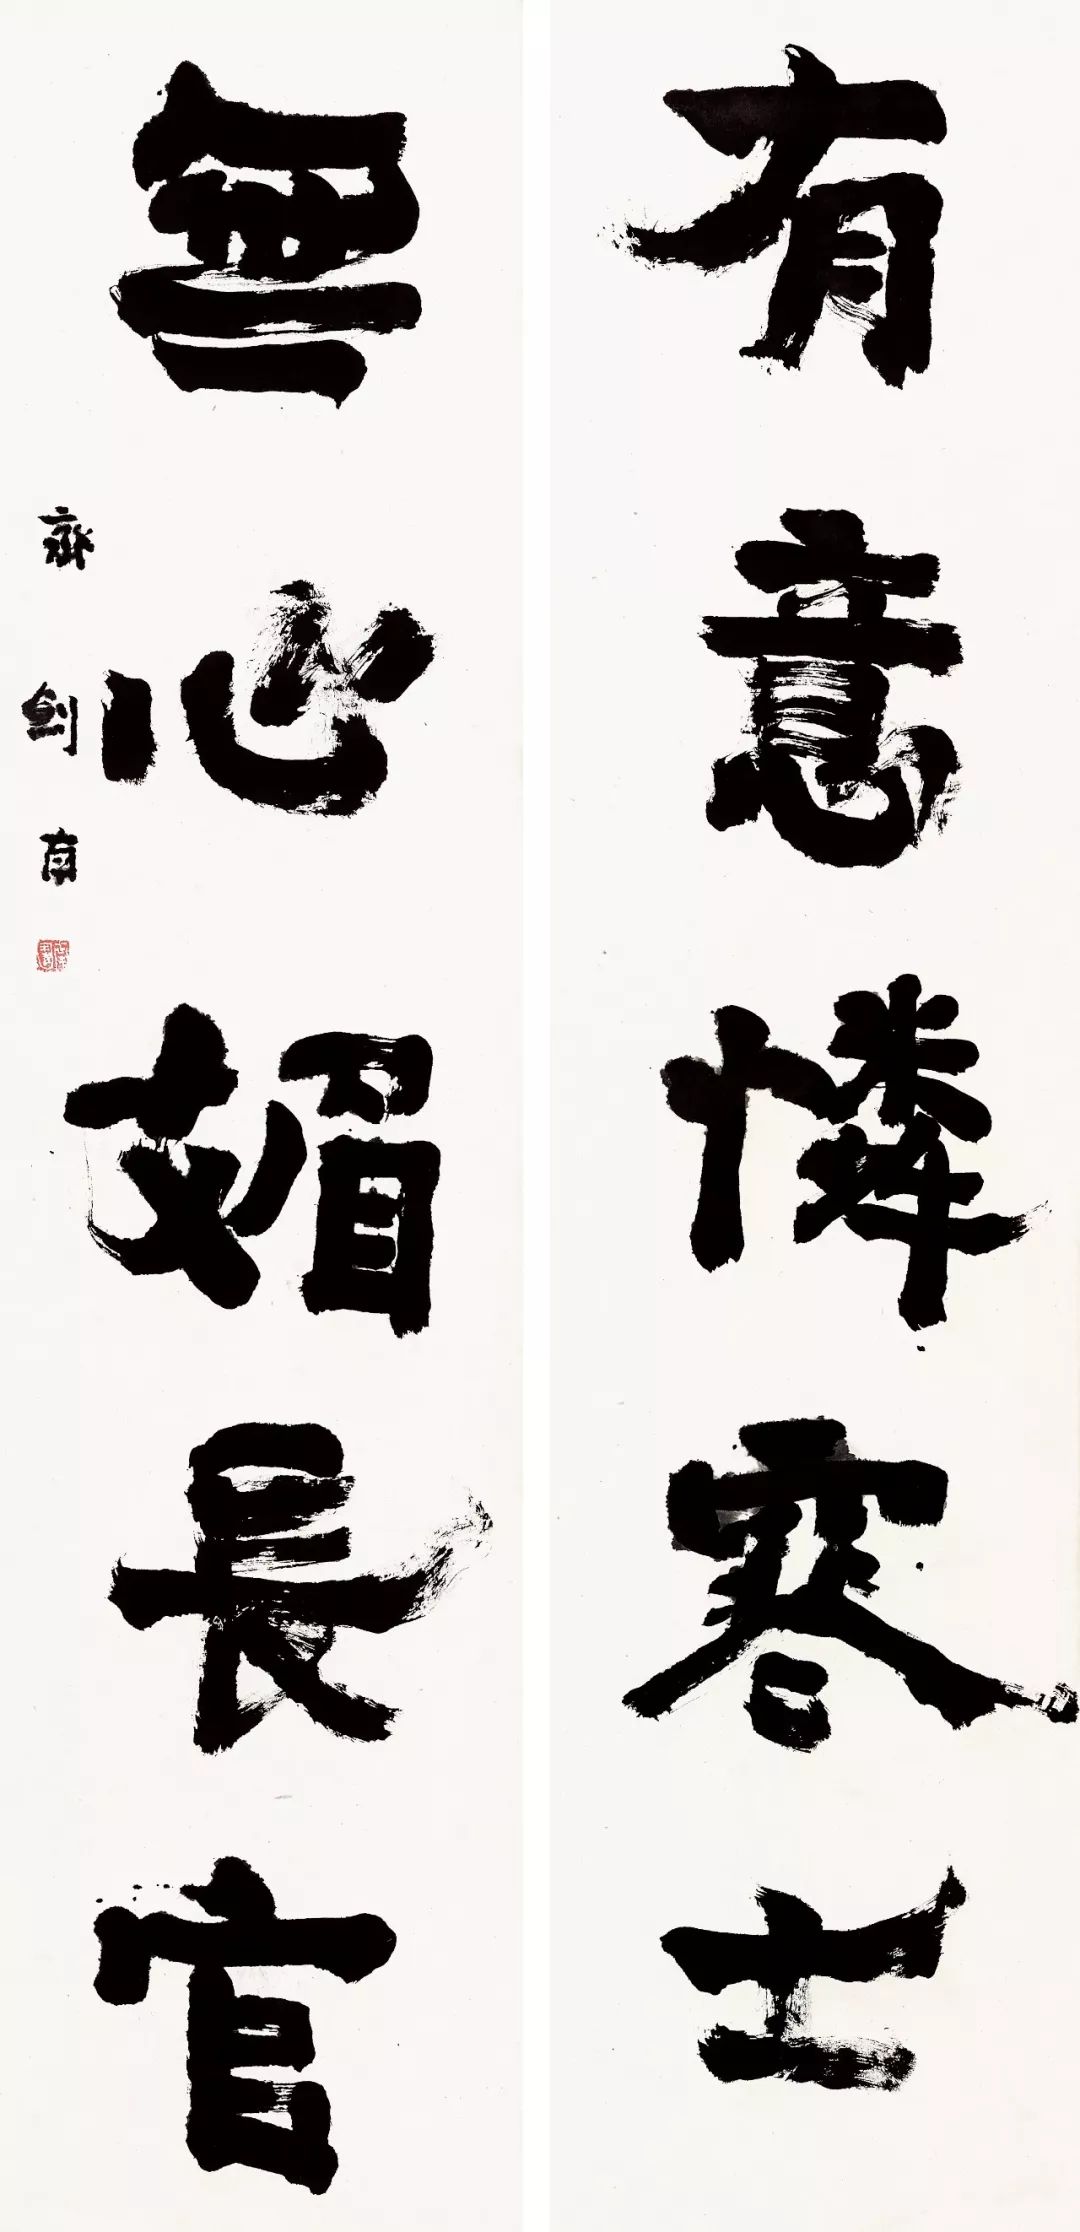 有意憐寒士
無心媚長官
齊劍南